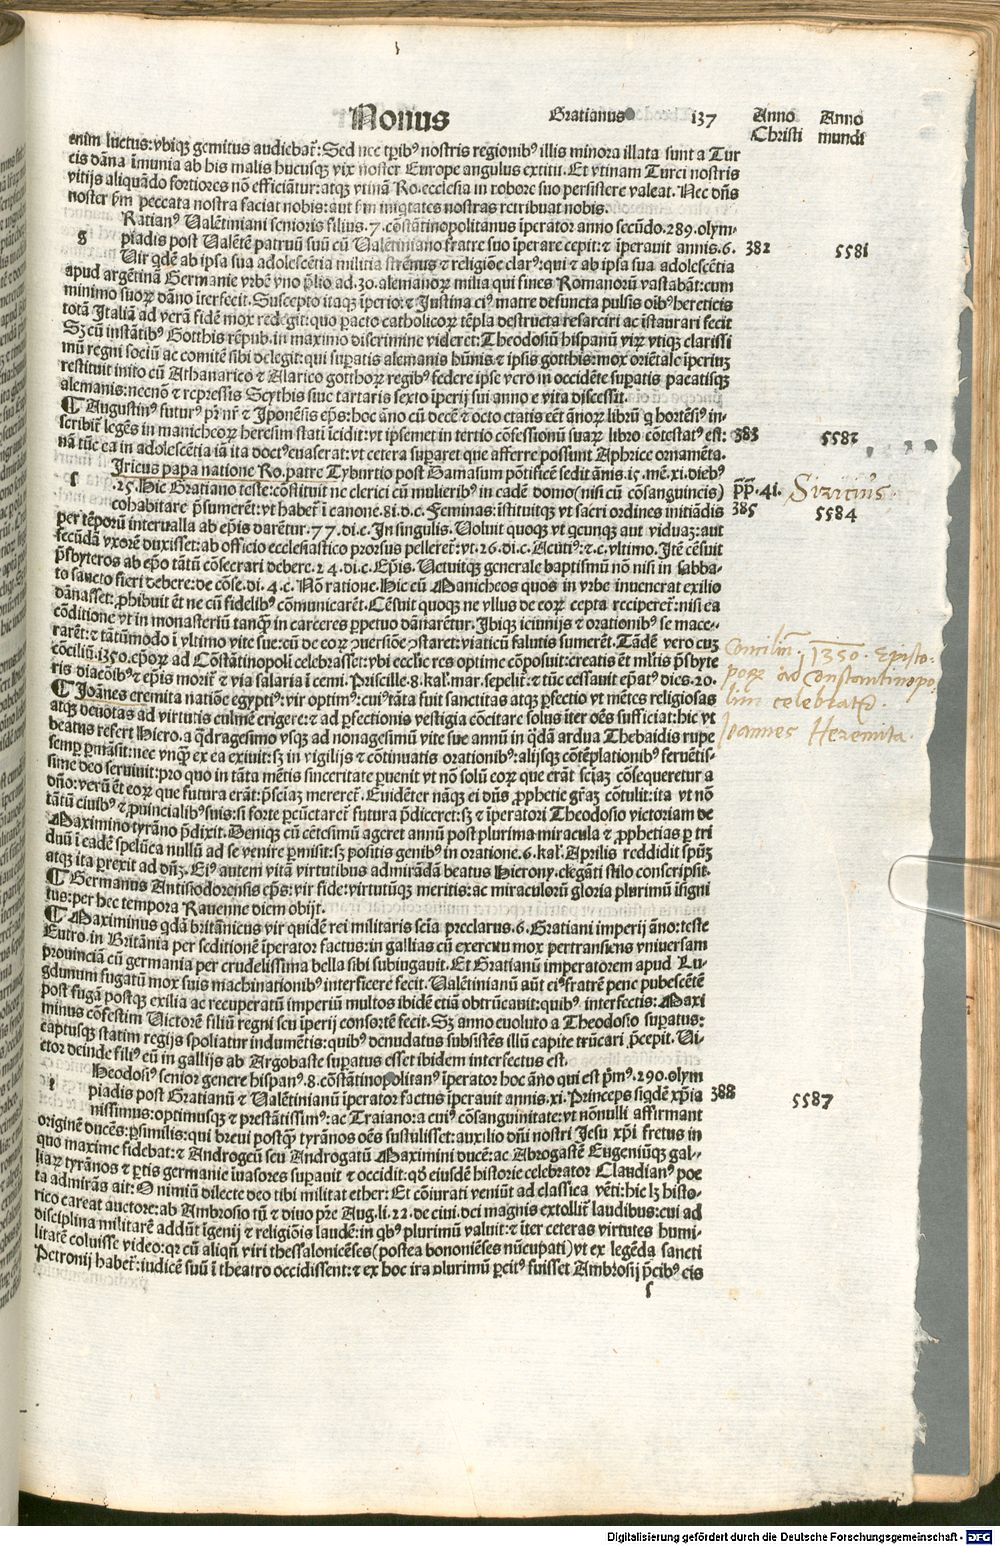 Nonus Gratianus 137 Anno Christi Anno mundi
enim luctus: vbiqꝫ gemitus audiebat᷑: Sed nec tp̱ibꝰ nostris regionibꝰ illis minora illata sunt a Tur
cis dãna ĩmunia ab his malis hucusqꝫ vix noster Europe angulus extitit. Et vtinam Turci nostris
vitijs aliquãdo fortiores nõ efficiãtur: atqꝫ vtinã Ro. ecclesia in robore suo persistere valeat. Nec dñs
noster ẜm peccata nostra faciat nobis: aut ẜm iniqtates nostras retribuat nobis.
g Ratianꝰ Ualẽtiniani senioris filius .7. cõstãtinopolitanus ĩperator anno secũdo .289. olym-
piadis post Ualẽtẽ patruũ suũ cũ Ualẽtiniano fratre suo ĩperare cepit: ⁊ ĩperauit annis .6. 382 5581
Uir qdẽ ab ipsa sua adolescẽtia militia strẽnus ⁊ religiõe clarꝰ: qui ⁊ ab ipsa sua adolescẽtia
apud argẽtinã Germanie vrbẽ vno p̃lio ad .30. alemanoꝝ milia qui fines Romanorũ vastabãt: cum
minimo suoꝝ dãno ĩterfecit. Suscepto itaqꝫ ĩperio: ⁊ Justina eiꝰ matre defuncta pulsis oĩbꝰ hereticis
totã Italiã ad verã fidẽ mox redegit: quo ꝑacto catholicoꝝ tẽpla destructa resarciri ac ĩstaurari fecit
Sꝫ cũ instãtibꝰ Gotthis rẽpub. in maximo discrimine videret: Theodosiũ hispanũ viꝝ vtiqꝫ clarissi
mũ regni sociũ ac comitẽ sibi delegit: qui suꝑatis alemanis hũnis ⁊ ipsis gotthis: mox oriẽtale ĩperiuꝫ
restituit inito cũ Athanarico ⁊ Alarico gotthoꝝ regibꝰ federe ipse vero in occidẽte suꝑatis pacatisqꝫ
alemanis: necnõ ⁊ repressis Scythis siue tartaris sexto ĩperij sui anno e vita discessit.
¶ Augustinꝰ futurꝰ pr̃ nr̃ ⁊ Iponẽsis ep̃s: hoc ãno cũ decẽ ⁊ octo etatis eẽt ãnoꝝ librũ q hortẽsiꝰ in-
scribit᷑ legẽs in manicheoꝝ heresim stati ĩcidit: vt ipsemet in tertio cõfessionũ suaꝝ libro cõtestatꝰ est: 383 5582
nã tũc ea in adolescẽtia iã ita doctꝰ euaserat: vt cetera suꝑaret que afferre possunt Aphrice ornamẽta.
s Iricius papa natione Ro. patre Tyburtio post Damasum põtificẽ sedit ãnis .15. mẽ. xi. diebꝰ
.25. Hic Gratiano teste: cõstituit ne clerici cũ mulieribꝰ in eadẽ domo (nisi cũ cõsanguineis) p̃p̃. 41. Siricius.
cohabitare p̃sumerẽt: vt habet᷑ ĩ canone. 81. d. c. Feminas: ĩstituitqꝫ vt sacri ordines initiãdis 385 5584
per tẽporũ interualla ab ep̃is darẽtur. 77. di. c. In singulis. Uoluit quoqꝫ vt qcunqꝫ aut viduaꝫ: aut
secũdã vxorẽ duxisset: ab officio ecclesiastico prorsus pelleret᷑: vt .26. di. c. Acutiꝰ: ⁊. c. vltimo. Itẽ cẽsuit
p̃sbyteros ab ep̃o tãtũ cõsecrari debere. 24. di. c. Ep̃is. Uetuitqꝫ generale baptismũ nõ nisi in sabba-
to sancto fieri debere: de cõse. di. 4. c. Nõ ratione. Hic cũ Manicheos quos in vrbe inuenerat exilio
dãnasset: ꝓhibuit ẽt ne cũ fidelibꝰ cõmunicarẽt. Cẽsuit quoqꝫ ne vllus de eoꝝ cepta reciperet᷑: nisi ea
cõditione vt in monasteriũ tanqꝫ in carceres ꝑpetuo dãnarẽtur. Ibiqꝫ ieiunijs ⁊ orationibꝰ se mace-
rarẽt: ⁊ tãtũmodo ĩ vltimo vite sue: cũ de eoꝝ ꝯuersiõe ꝯstaret: viaticũ salutis sumerẽt. Tãdẽ vero cuꝫ
cõciliũ. 1350. ep̃oꝝ ad Cõstãtinopoli celebrasset: vbi eccl̃ie res optime cõposuit: creatis ẽt ml̃tis p̃sbyte Conciliũ. 1350. Episco-
ris diacõibꝰ ⁊ ep̃is morit᷑ ⁊ via salaria ĩ cemi. Priscille .8. kal. mar. sepelit᷑: ⁊ tũc cessauit ep̃atꝰ dies .20. poꝝ ad Constantinopo-
¶ Joãnes eremita natiõe egyptiꝰ: vir optimꝰ: cuiꝰ tãta fuit sanctitas atqꝫ ꝑfectio vt mẽtes religiosas lim celebratũ.
atqꝫ deuotas ad virtutis culmẽ erigere: ⁊ ad ꝑfectionis vestigia cõcitare solus iter oẽs sufficiat: hic vt
beatus refert Hiero. a q̃dragesimo vsqꝫ ad nonagesimũ vite sue annũ in q̃dã ardua Thebaidis rupe Joannes Heremita.
semꝑ ꝑmãsit: nec vnqꝫ ex ea exiuit: sꝫ in vigilijs ⁊ cõtinuatis orationibꝰ: alijsqꝫ cõtẽplationibꝰ feruẽtis-
sime deo seruiuit: pro quo in tãta mẽtis sinceritate ꝑuenit vt nõ solũ eoꝝ que erãt sc̃iaꝫ cõsequeretur a
dño: verũ ẽt eoꝝ que futura erãt: p̃sciaꝫ mereret᷑. Euidẽter nãqꝫ ei dñs ꝓphetie gr̃aꝫ cõtulit: ita vt nõ
tãtũ ciuibꝰ ⁊ ꝓuincialibꝰ suis: si forte ꝑcũctaret᷑ futura p̃diceret: sꝫ ⁊ ĩperatori Theodosio victoriam de
Maximino tyrãno p̃dixit. Denique cũ cẽtesimũ ageret annũ post plurima miracula ⁊ ꝓphetias ꝑ tri
duũ ĩ eadẽ spelũca nullũ ad se venire ꝑmisit: sꝫ positis genibꝰ in oratione. 6. kal̃. Aprilis reddidit spũꝫ
atqꝫ ita ꝑrexit ad dñꝫ. Eiꝰ autem vitã virtutibus admirãdã beatus Hierony. elegãti stilo conscripsit.
¶ Germanus Antisiodorensis ep̃s: vir fide: virtutũqꝫ meritis: ac miraculorũ gloria plurimũ ĩsigni
tus: per hec tempora Rauenne diem obijt.
¶ Maximinus qdã britãnicus vir quidẽ rei militaris sc̃ia preclarus. 6. Gratiani imperij ãno: teste
Eutro. in Britãnia per seditionẽ ĩperator factus: in gallias cũ exercitu mox pertransiens vniuersam
prouinciã cũ germania per crudelissima bella sibi subiugauit. Et Gratianũ imperatorem apud Lu-
gdunum fugatũ mox suis machinationibꝰ interficere fecit. Ualẽtinianũ aũt eiꝰ fratrẽ pene pubescẽtẽ
post fugã postqꝫ exilia ac recuperatũ imperiũ multos ibidẽ etiã obtrũcauit: quibꝰ interfectis: Maxi
minus cõfestim Uictorẽ filiũ regni seu ĩperij consortẽ fecit. Sꝫ anno euoluto a Theodosio suꝑatus:
captusqꝫ statim regijs spoliatur indumẽtis: quibꝰ denudatus subsistẽs illũ capite trũcari p̃cepit. Ui-
ctor deinde filiꝰ eũ in gallijs ab Argobaste suꝑatus esset ibidem interfectus est.
t Heodosiꝰ senior genere hispanꝰ .8. cõstãtinopolitanꝰ ĩperator hoc ãno qui est p̃mꝰ .290. olym
piadis post Gratianũ ⁊ Ualẽtinianũ ĩperator factus ĩperauit annis .xi. Princeps siqdẽ xp̃ia 388 5587
nissimus: optimusqꝫ ⁊ prestãtissimꝰ: ac Traiano: a cuiꝰ cõsanguinitate: vt nõnulli affirmant
originẽ ducẽs: ꝑsimilis: qui breui postqꝫ tyrãnos oẽs sustulisset: auxilio dñi nostri Jesu xp̃i fretus in
quo maxime fidebat: ⁊ Androgeũ seu Androgatũ Maximini ducẽ: ac Abrogastẽ Eugeniũqꝫ gal-
liaꝝ tyrãnos ⁊ ꝑtis germanie ĩuasores suꝑauit ⁊ occidit: qd̾ eiusdẽ historie celebrator Claudianꝰ poe
ta admirãs ait: O nimiũ dilecte deo tibi militat ether: Et cõiurati veniũt ad classica vẽti: hic lꝫ histo-
rico careat auctore: ab Ambrosio tñ ⁊ diuo pr̃e Aug. li. 22. de ciui. dei magnis extollit᷑ laudibus: cui ad
disciplina militarẽ addũt ĩgenij ⁊ religiõis laudẽ: in qbꝰ plurimũ valuit: ⁊ ĩter ceteras virtutes humi-
litatẽ coluisse video: qꝛ cũ aliqñ viri thessalonicẽses (postea bononiẽses nũcupati) vt ex legẽda sancti
Petronij habet᷑: iudicẽ suũ ĩ theatro occidissent: ⁊ ex hoc ira plurimũ ꝑcitꝰ fuisset Ambrosij p̃cibꝰ eis
s
Digitalisierung gefördert durch die Deutsche Forschungsgemeinschaft - DFG